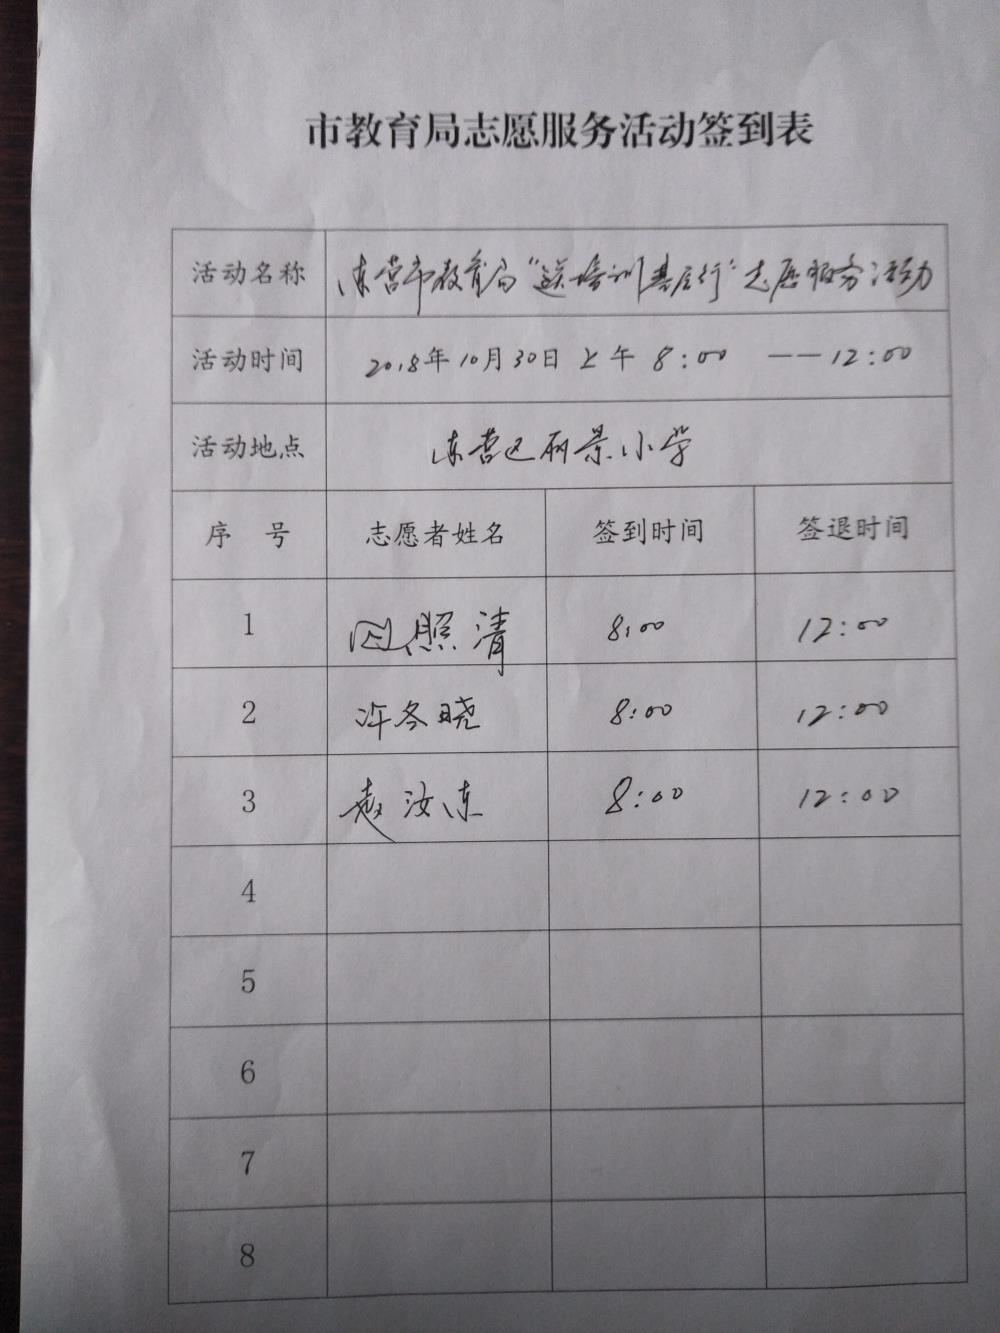 市教育局志愿服务活动签到表
活动名称 东营市教育局“送培训基层行”志愿服务活动
活动时间 2018年10月30日上午8:00 ——12:00
活动地点 东营区丽景小学
序 号 志愿者姓名 签到时间 签退时间
1 照清 8:00 12:00
2 许冬晓 8:00 12:00
3 赵汝东 8:00 12:00
4
5
6
7
8